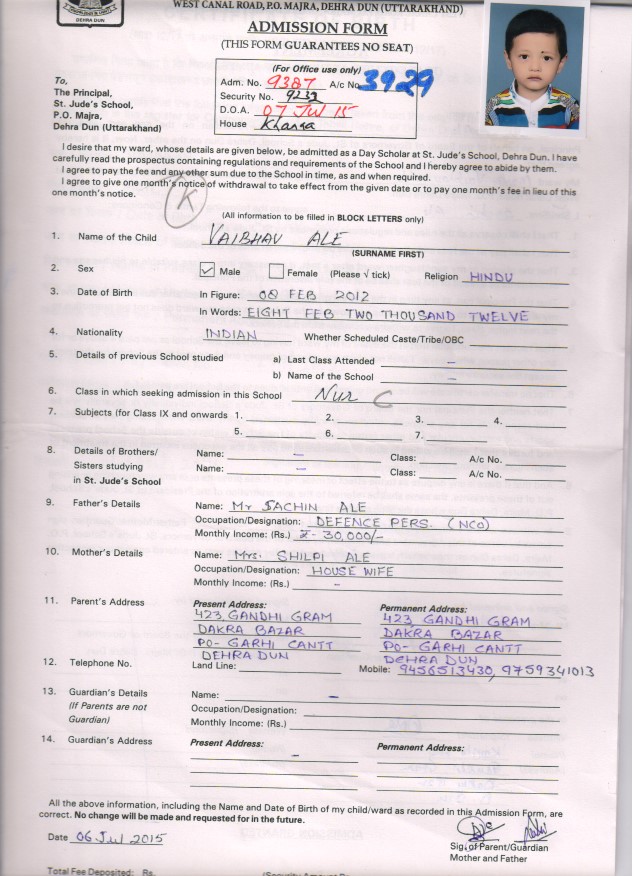 WEST CANAL ROAD, P.O. MAJRA, DEHRA DUN (UTTARAKHAND)
DEHRA DUN
ADMISSION FORM
(THIS FORM GUARANTEES NO SEAT)
(For Office use only)
Adm. No. 9387 A/c No. 3929
Security No. 9232
D.O.A. 07 Jul 15
House Khanna
To,
The Principal,
St. Jude's School,
P.O. Majra,
Dehra Dun (Uttarakhand)
I desire that my ward, whose details are given below, be admitted as a Day Scholar at St. Jude's School, Dehra Dun. I have
carefully read the prospectus containing regulations and requirements of the School and I hereby agree to abide by them.
I agree to pay the fee and any other sum due to the School in time, as and when required.
I agree to give one month's notice of withdrawal to take effect from the given date or to pay one month's fee in lieu of this
one month's notice.
K
(All information to be filled in BLOCK LETTERS only)
1. Name of the Child VAIBHAV ALE
(SURNAME FIRST)
2. Sex Male Female (Please √ tick) Religion HINDU
3. Date of Birth In Figure: 08 FEB 2012
In Words: EIGHT FEB TWO THOUSAND TWELVE
4. Nationality INDIAN Whether Scheduled Caste/Tribe/OBC
5. Details of previous School studied a) Last Class Attended –
b) Name of the School –
6. Class in which seeking admission in this School Nur C
7. Subjects (for Class IX and onwards 1. 2. 3. 4.
5. 6. 7.
8. Details of Brothers/ Name: – Class: A/c No.
Sisters studying Name: – Class: A/c No.
in St. Jude's School
9. Father's Details Name: Mr SACHIN ALE
Occupation/Designation: DEFENCE PERS. (NCO)
Monthly Income: (Rs.) ₹- 30,000/-
10. Mother's Details Name: Mrs. SHILPI ALE
Occupation/Designation: HOUSE WIFE
Monthly Income: (Rs.) –
11. Parent's Address Present Address: Permanent Address:
423, GANDHI GRAM 423, GANDHI GRAM
DAKRA BAZAR DAKRA BAZAR
PO- GARHI CANTT PO- GARHI CANTT
DEHRA DUN DEHRA DUN
12. Telephone No. Land Line: Mobile: 9456513430, 9759341013
13. Guardian's Details Name: –
(If Parents are not Occupation/Designation:
Guardian) Monthly Income: (Rs.)
14. Guardian's Address Present Address: Permanent Address:
–
All the above information, including the Name and Date of Birth of my child/ward as recorded in this Admission Form, are
correct. No change will be made and requested for in the future.
Date 06 Jul 2015
Sig. of Parent/Guardian
Mother and Father
Total Fee Deposited: Rs.